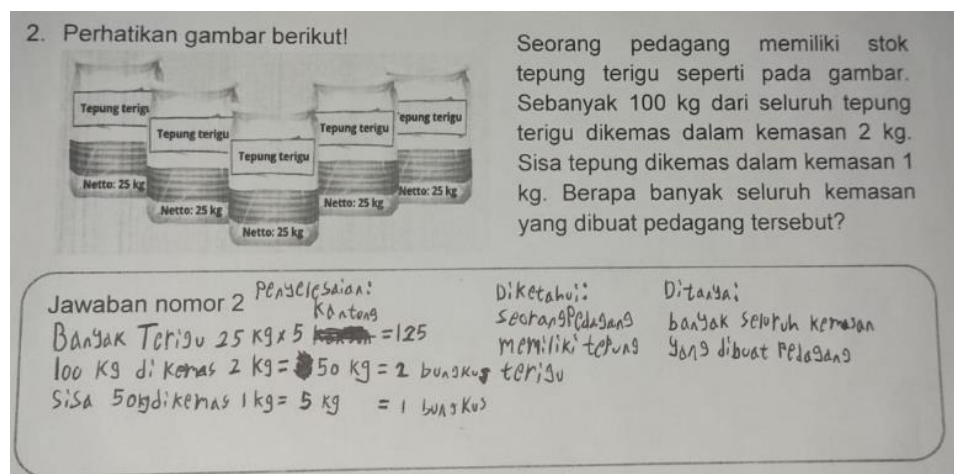 2. Perhatikan gambar berikut!
Tepung terigu
Netto: 25 kg
Tepung terigu
Netto: 25 kg
Tepung terigu
Netto: 25 kg
Tepung terigu
Netto: 25 kg
epung terigu
Netto: 25 kg
Seorang pedagang memiliki stok
tepung terigu seperti pada gambar.
Sebanyak 100 kg dari seluruh tepung
terigu dikemas dalam kemasan 2 kg.
Sisa tepung dikemas dalam kemasan 1
kg. Berapa banyak seluruh kemasan
yang dibuat pedagang tersebut?
Jawaban nomor 2
Penyelesaian:
Kantong
Banyak Terigu 25 kg x 5 = 125
100 Kg di Kemas 2 kg = 50 kg = 2 bungkus
Sisa 50kg dikemas 1 kg = 5 kg = 1 bungkus
Diketahui:
Seorang Pedagang
memiliki tepung
terigu
Ditanya:
banyak seluruh kemasan
yang dibuat Pedagang